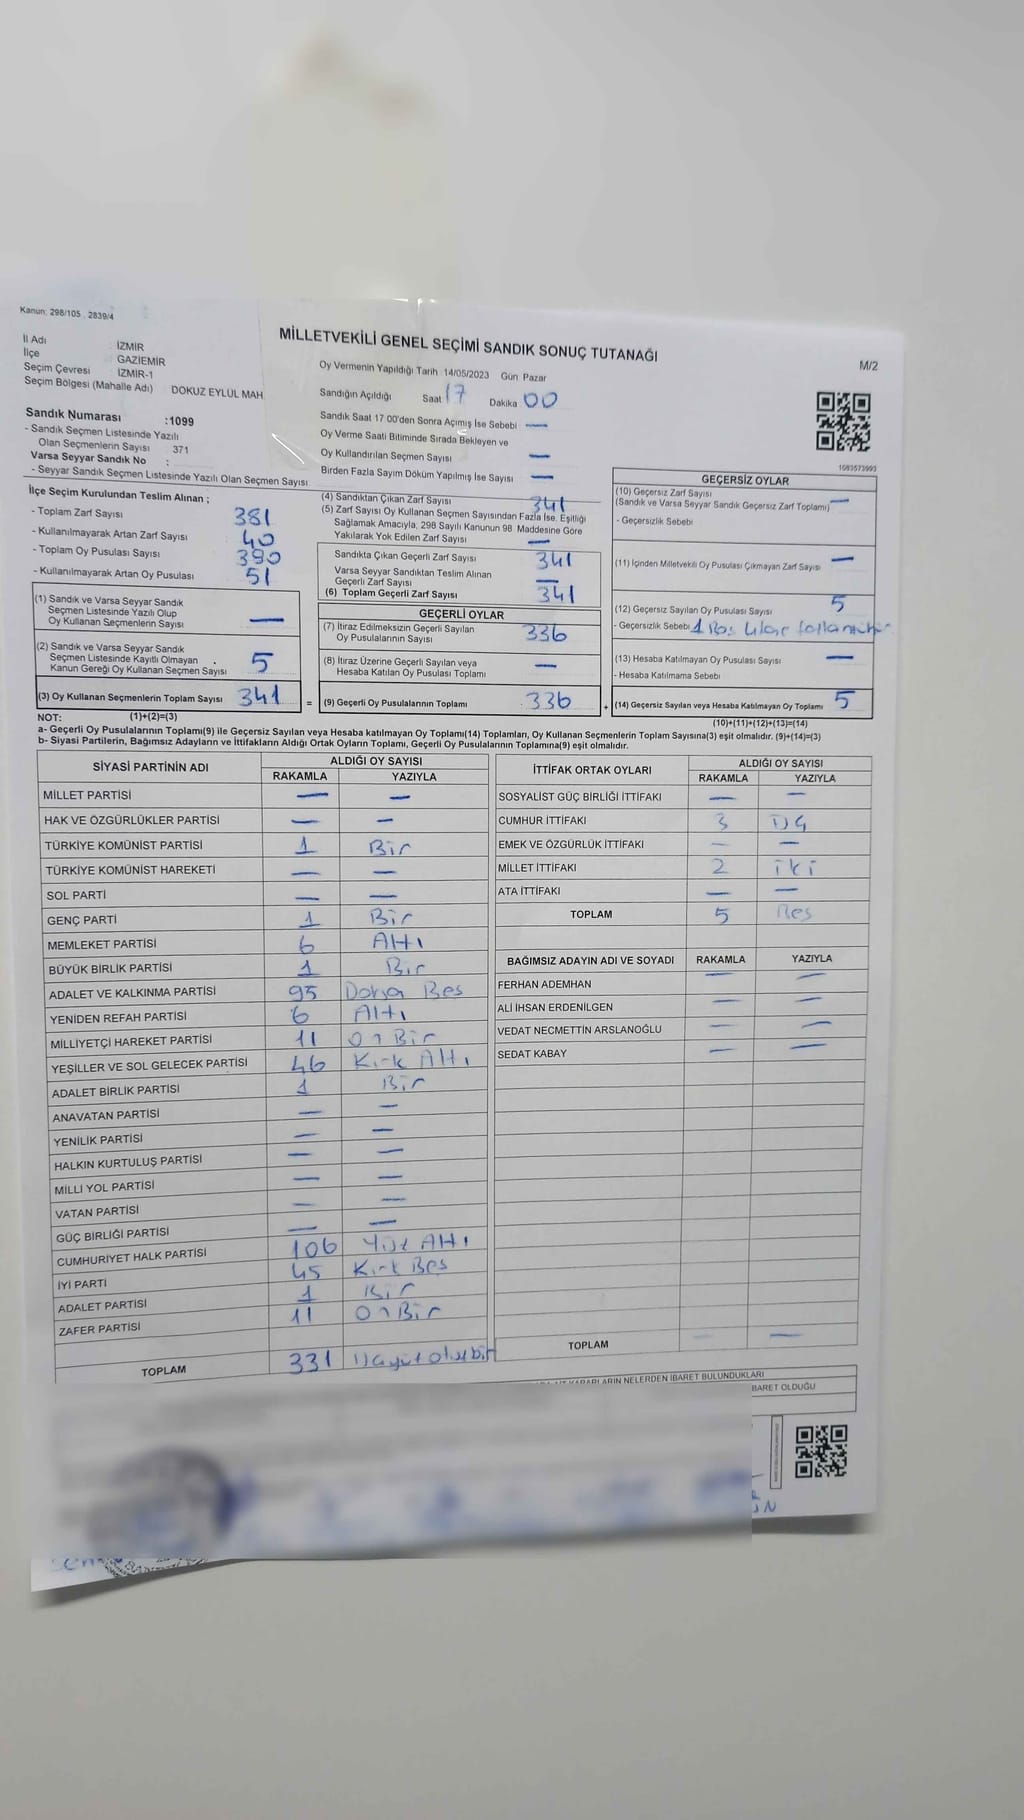 Kanun; 298/105 , 2839/4
MİLLETVEKİLİ GENEL SEÇİMİ SANDIK SONUÇ TUTANAĞI
M/2
İl Adı İZMİR
İlçe GAZİEMİR
Seçim Çevresi İZMİR-1
Seçim Bölgesi (Mahalle Adı) DOKUZ EYLÜL MAH.
Sandık Numarası :1099
- Sandık Seçmen Listesinde Yazılı
Olan Seçmenlerin Sayısı 371
Varsa Seyyar Sandık No :
- Seyyar Sandık Seçmen Listesinde Yazılı Olan Seçmen Sayısı
Oy Vermenin Yapıldığı Tarih 14/05/2023 Gün Pazar
Sandığın Açıldığı Saat 17 Dakika 00
Sandık Saat 17:00'den Sonra Açımış İse Sebebi —
Oy Verme Saati Bitiminde Sırada Bekleyen ve
Oy Kullandırılan Seçmen Sayısı —
Birden Fazla Sayım Döküm Yapılmış İse Sayısı —
1083573993
İlçe Seçim Kurulundan Teslim Alınan ;
- Toplam Zarf Sayısı 381
- Kullanılmayarak Artan Zarf Sayısı 40
- Toplam Oy Pusulası Sayısı 390
- Kullanılmayarak Artan Oy Pusulası 51
(1) Sandık ve Varsa Seyyar Sandık
Seçmen Listesinde Yazılı Olup
Oy Kullanan Seçmenlerin Sayısı —
(2) Sandık ve Varsa Seyyar Sandık
Seçmen Listesinde Kayıtlı Olmayan
Kanun Gereği Oy Kullanan Seçmen Sayısı 5
(3) Oy Kullanan Seçmenlerin Toplam Sayısı 341 =
(4) Sandıktan Çıkan Zarf Sayısı 341
(5) Zarf Sayısı Oy Kullanan Seçmen Sayısından Fazla İse, Eşitliği
Sağlamak Amacıyla, 298 Sayılı Kanunun 98. Maddesine Göre
Yakılarak Yok Edilen Zarf Sayısı —
Sandıkta Çıkan Geçerli Zarf Sayısı 341
Varsa Seyyar Sandıktan Teslim Alınan
Geçerli Zarf Sayısı —
(6) Toplam Geçerli Zarf Sayısı 341
GEÇERLİ OYLAR
(7) İtiraz Edilmeksizin Geçerli Sayılan
Oy Pusulalarının Sayısı 336
(8) İtiraz Üzerine Geçerli Sayılan veya
Hesaba Katılan Oy Pusulası Toplamı —
(9) Geçerli Oy Pusulalarının Toplamı 336 +
GEÇERSİZ OYLAR
(10) Geçersiz Zarf Sayısı
(Sandık ve Varsa Seyyar Sandık Geçersiz Zarf Toplamı) —
- Geçersizlik Sebebi
(11) İçinden Milletvekili Oy Pusulası Çıkmayan Zarf Sayısı —
(12) Geçersiz Sayılan Oy Pusulası Sayısı 5
- Geçersizlik Sebebi 1
(13) Hesaba Katılmayan Oy Pusulası Sayısı —
- Hesaba Katılmama Sebebi
(14) Geçersiz Sayılan veya Hesaba Katılmayan Oy Toplamı 5
NOT: (1)+(2)=(3) (10)+(11)+(12)+(13)=(14)
a- Geçerli Oy Pusulalarının Toplamı(9) ile Geçersiz Sayılan veya Hesaba katılmayan Oy Toplamı(14) Toplamları, Oy Kullanan Seçmenlerin Toplam Sayısına(3) eşit olmalıdır. (9)+(14)=(3)
b- Siyasi Partilerin, Bağımsız Adayların ve İttifakların Aldığı Ortak Oyların Toplamı, Geçerli Oy Pusulalarının Toplamına(9) eşit olmalıdır.
SİYASİ PARTİNİN ADI ALDIĞI OY SAYISI
RAKAMLA YAZIYLA
MİLLET PARTİSİ — —
HAK VE ÖZGÜRLÜKLER PARTİSİ — —
TÜRKİYE KOMÜNİST PARTİSİ 1 Bir
TÜRKİYE KOMÜNİST HAREKETİ — —
SOL PARTİ — —
GENÇ PARTİ 1 Bir
MEMLEKET PARTİSİ 6 Altı
BÜYÜK BİRLİK PARTİSİ 1 Bir
ADALET VE KALKINMA PARTİSİ 95 Beş
YENİDEN REFAH PARTİSİ 6 Altı
MİLLİYETÇİ HAREKET PARTİSİ 11 On Bir
YEŞİLLER VE SOL GELECEK PARTİSİ 46 Kırk Altı
ADALET BİRLİK PARTİSİ 1 Bir
ANAVATAN PARTİSİ — —
YENİLİK PARTİSİ — —
HALKIN KURTULUŞ PARTİSİ — —
MİLLİ YOL PARTİSİ — —
VATAN PARTİSİ — —
GÜÇ BİRLİĞİ PARTİSİ — —
CUMHURİYET HALK PARTİSİ 106 Yüz Altı
İYİ PARTİ 45 Kırk Beş
ADALET PARTİSİ 1 Bir
ZAFER PARTİSİ 11 On Bir
TOPLAM 331
İTTİFAK ORTAK OYLARI ALDIĞI OY SAYISI
RAKAMLA YAZIYLA
SOSYALİST GÜÇ BİRLİĞİ İTTİFAKI — —
CUMHUR İTTİFAKI 3 Üç
EMEK VE ÖZGÜRLÜK İTTİFAKI — —
MİLLET İTTİFAKI 2 iki
ATA İTTİFAKI — —
TOPLAM 5 Beş
BAĞIMSIZ ADAYIN ADI VE SOYADI RAKAMLA YAZIYLA
FERHAN ADEMHAN — —
ALİ İHSAN ERDENİLGEN — —
VEDAT NECMETTİN ARSLANOĞLU — —
SEDAT KABAY — —
TOPLAM — —
NELERDEN İBARET BULUNDUKLARI
BARET OLDUĞU